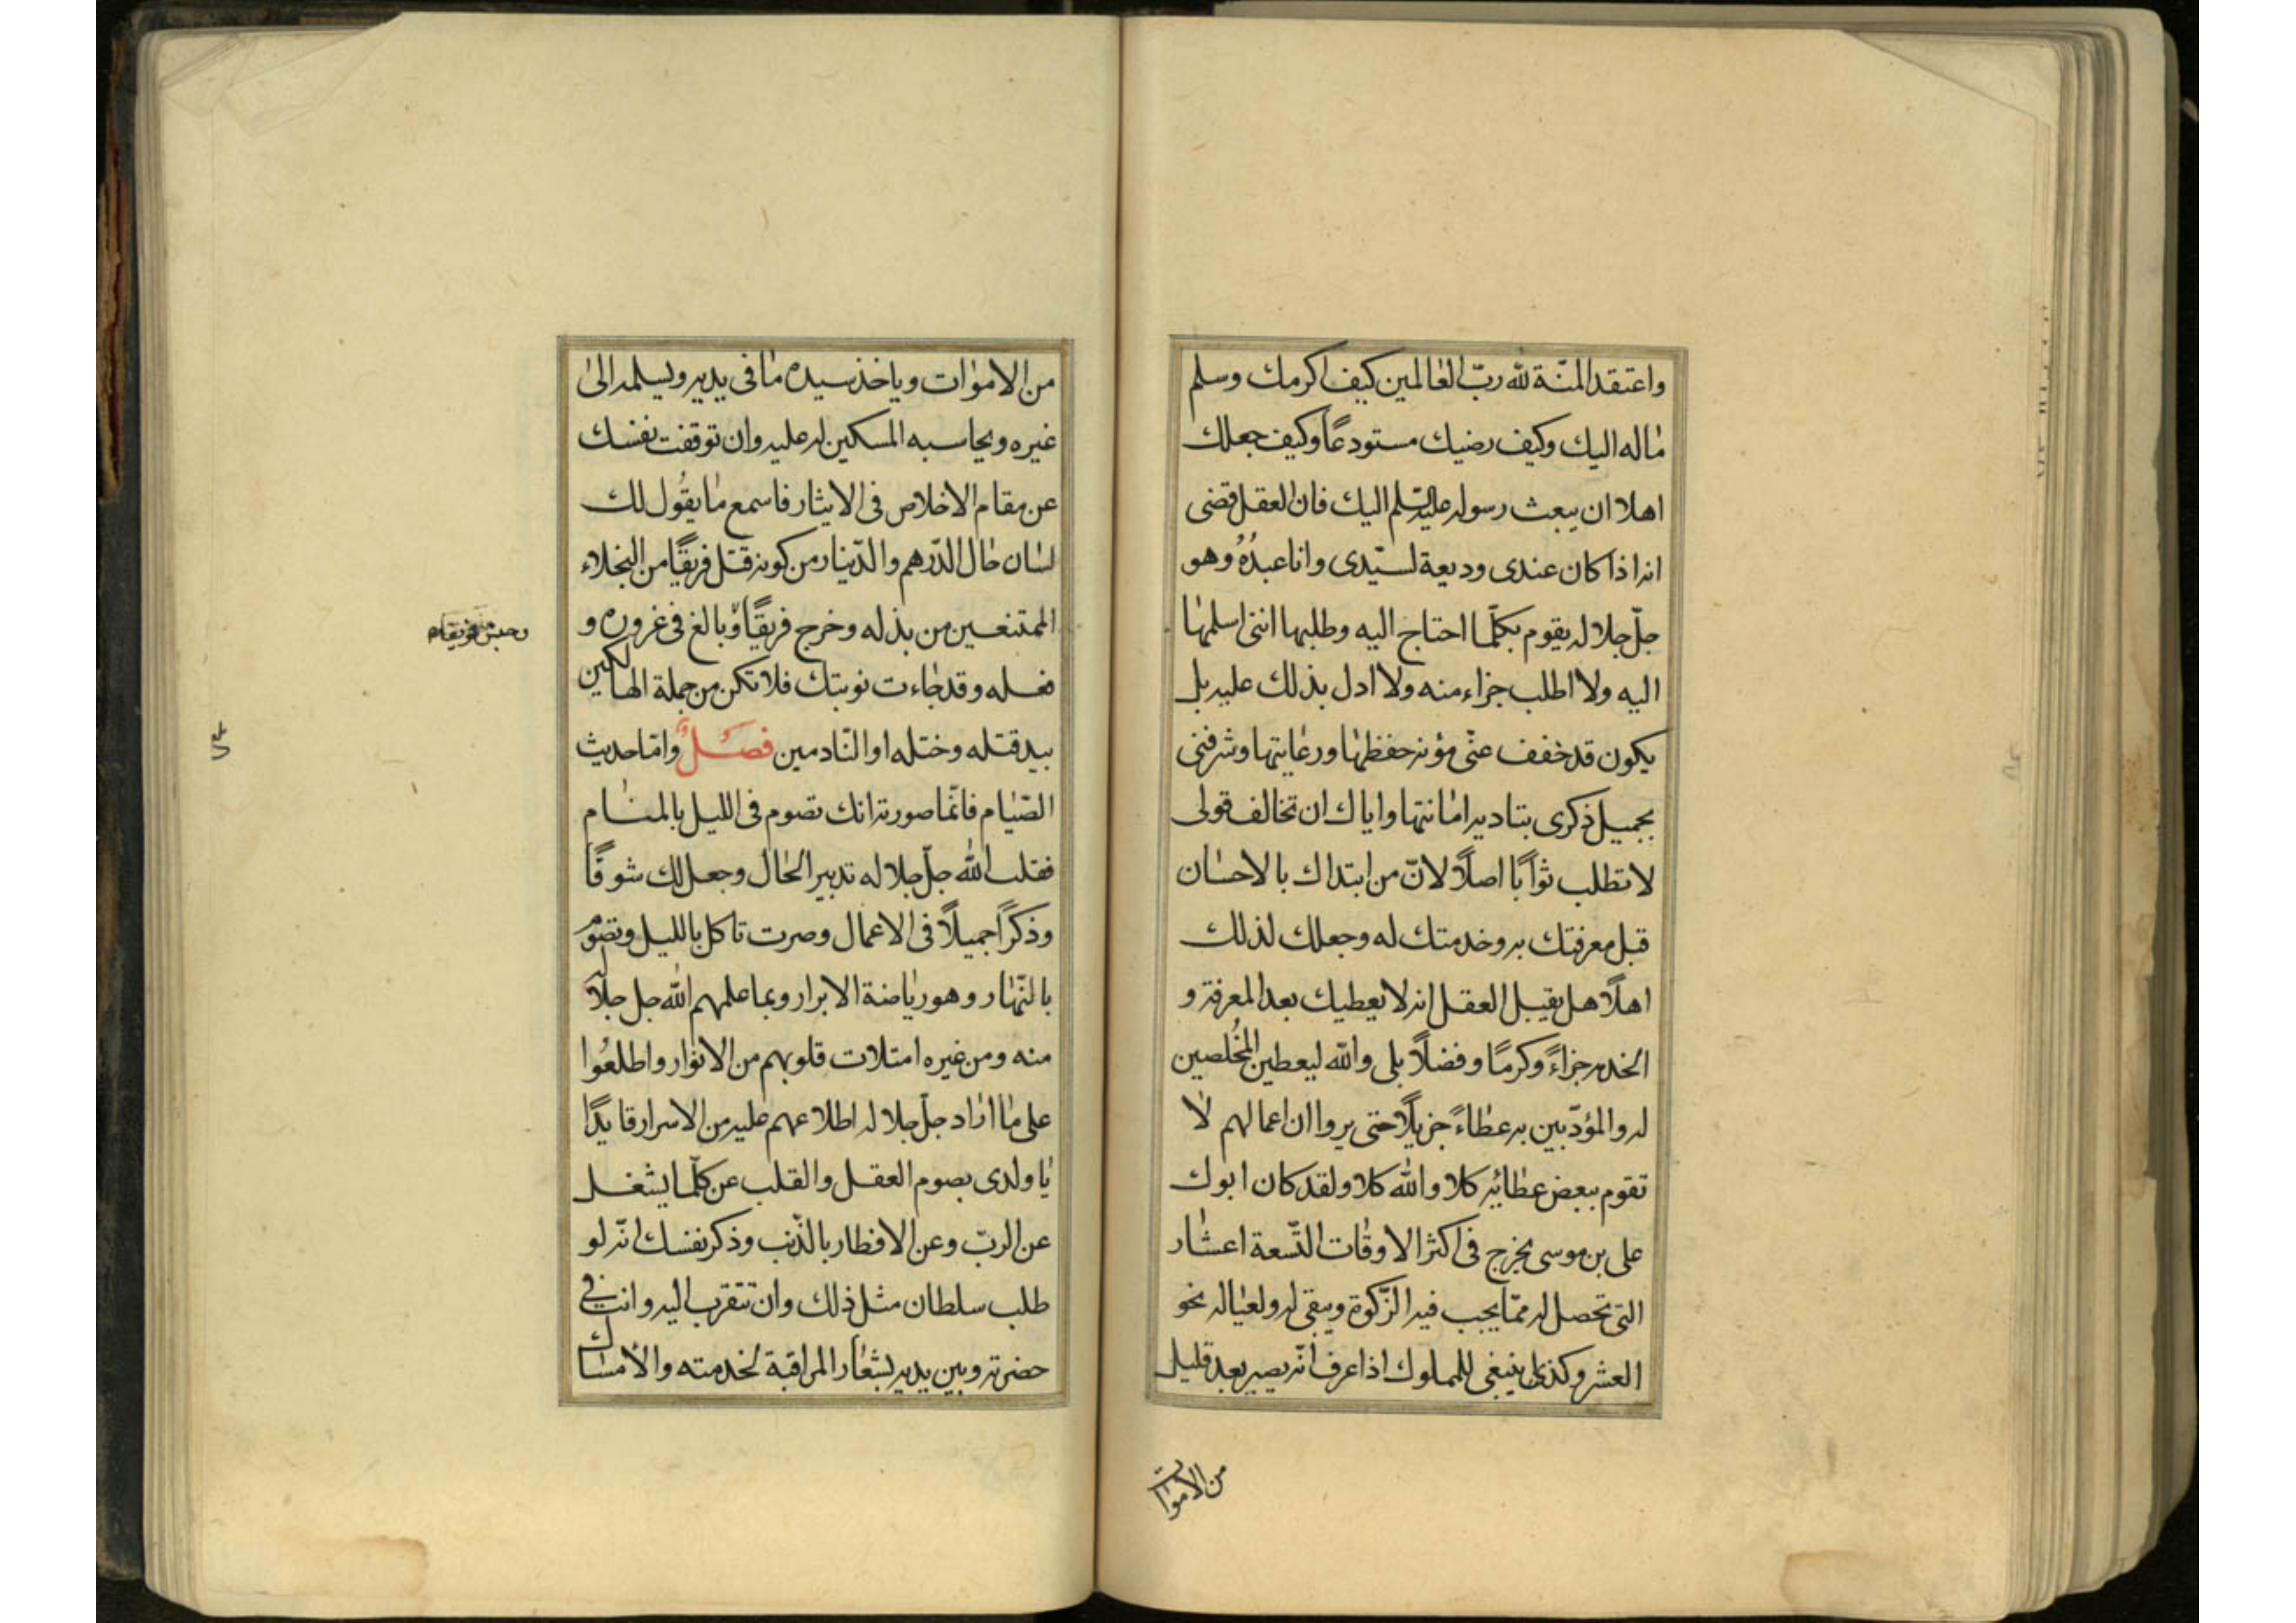 واعتقد المنّة لله ربّ العالمين كيف اكرمك وسلم
ماله اليك وكيف رضيك مستودعاً وكيف جعلك
اهلا ان يبعث رسوله عليه السّلم اليك فان العقل قضى
انه اذا كان عندى وديعة لسيّدى وانا عبدُهُ وهو
جلّ جلاله يقوم بكلّما احتاج اليه وطلبها اننى اسلمها
اليه ولا اطلب جزاء منه ولا ادل بذلك عليه بل
يكون قد خفف عنّى مؤنة حفظها ورعايتها وشرفنى
بجميل ذكرى بتاديه امانتها واياك ان تخالف قولى
لا تطلب ثواباً اصلاً لانّ من ابتداك بالاحسان
قبل معرفتك به وخدمتك له وجعلك لذلك
اهلاً هل يقبل العقل انه لا يعطيك بعد المعرفة و
الخدمه جزاءً وكرمًا وفضلاً بلى والله ليعطين المُخلصين
له والمؤدّبين به عطاءً جزيلاً حتى يروا ان اعمالهم لا
تقوم ببعض عطائه كلا والله كلا ولقد كان ابوك
على بن موسى يخرج فى اكثر الاوقات التّسعة اعشار
التى تحصل له ممّا يجب فيه الزّكوة ويبقى له ولعياله نحو
العشر وكذا ينبغى للمملوك اذا عرف انّه يصير بعد قليل
من الاموات
من الاموات وياخذ سيده ما فى يديه ويسلمه الى
غيره ويحاسبه المسكين له عليه وان توقفت نفسك
عن مقام الاخلاص فى الايثار فاسمع ما يقُول لك
لسان حال الدّرهم والدّينار من كونه قتل فريقًا من البخلاء
الممتنعين من بذله وخرج فريقًا وبالغ فى غروره و
فعله وقد جاءت نوبتك فلا تكن من جملة الهالكين
بيد قتله وختله او النّادمين فصلٌ وامّا حديث
الصّيام فانّما صورته انك تصوم فى الليل بالمنام
فقلب الله جلّ جلاله تدبير الحال وجعل لك شوقًا
وذكراً جميلاً فى الاعمال وصرت تاكل بالليل وتصوم
بالنّهار وهو رياضة الابرار وبما علمهم الله جل جلاله
منه ومن غيره امتلات قلوبهم من الانوار واطلعُوا
على ما اراد جلّ جلاله اطلاعهم عليه من الاسرار قايدًا
يا ولدى بصوم العقل والقلب عن كلّما يشغل
عن الربّ وعن الافطار بالذّنب وذكر نفسك انّه لو
طلب سلطان مثل ذلك وان تتقرب اليه وانت فى
حضرته وبين يديه بشعار المراقبة لخدمته والأمساك